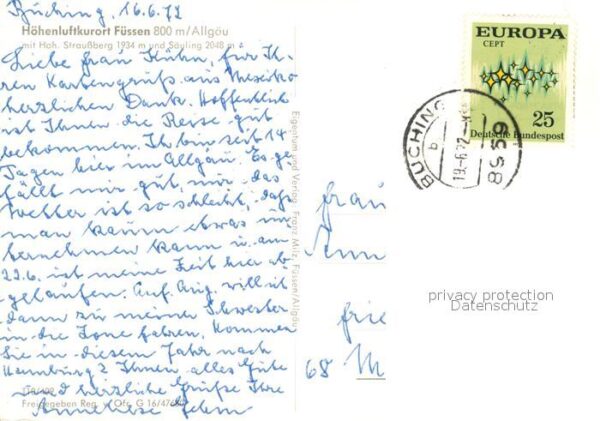 Büching, 16.6.72
Höhenluftkurort Füssen 800 m/Allgäu
mit Hoh. Straußberg 1934 m und Säuling 2048 m
Liebe Frau Kühn, für Ih-
ren Kartengruß aus Mexiko
herzlichen Dank. Hoffentlich
ist Ihnen die Reise gut
bekommen. Ich bin seit 14
Tagen hier im Allgäu. Es ge-
fällt mir gut, nur das
Wetter ist so schlecht, daß
man kaum etwas un-
ternehmen kann u. am
22.6. ist meine Zeit hier ab-
gelaufen. Auf. Aug. will ich
dann zu meiner Schwester
in die Zone fahren. Kommen
Sie in diesem Jahr nach
Hamburg? Ihnen alles Gute
und herzliche Grüße Ihre
Freigegeben Reg. v. Obb. G 16/47
Anneliese
Eigentum und Verlag: Franz Milz, Füssen/Allgäu
EUROPA
CEPT
25
Deutsche Bundespost
BÜCHING
b
19.-6.72
8959
Frau
68 M
privacy protection
Datenschutz